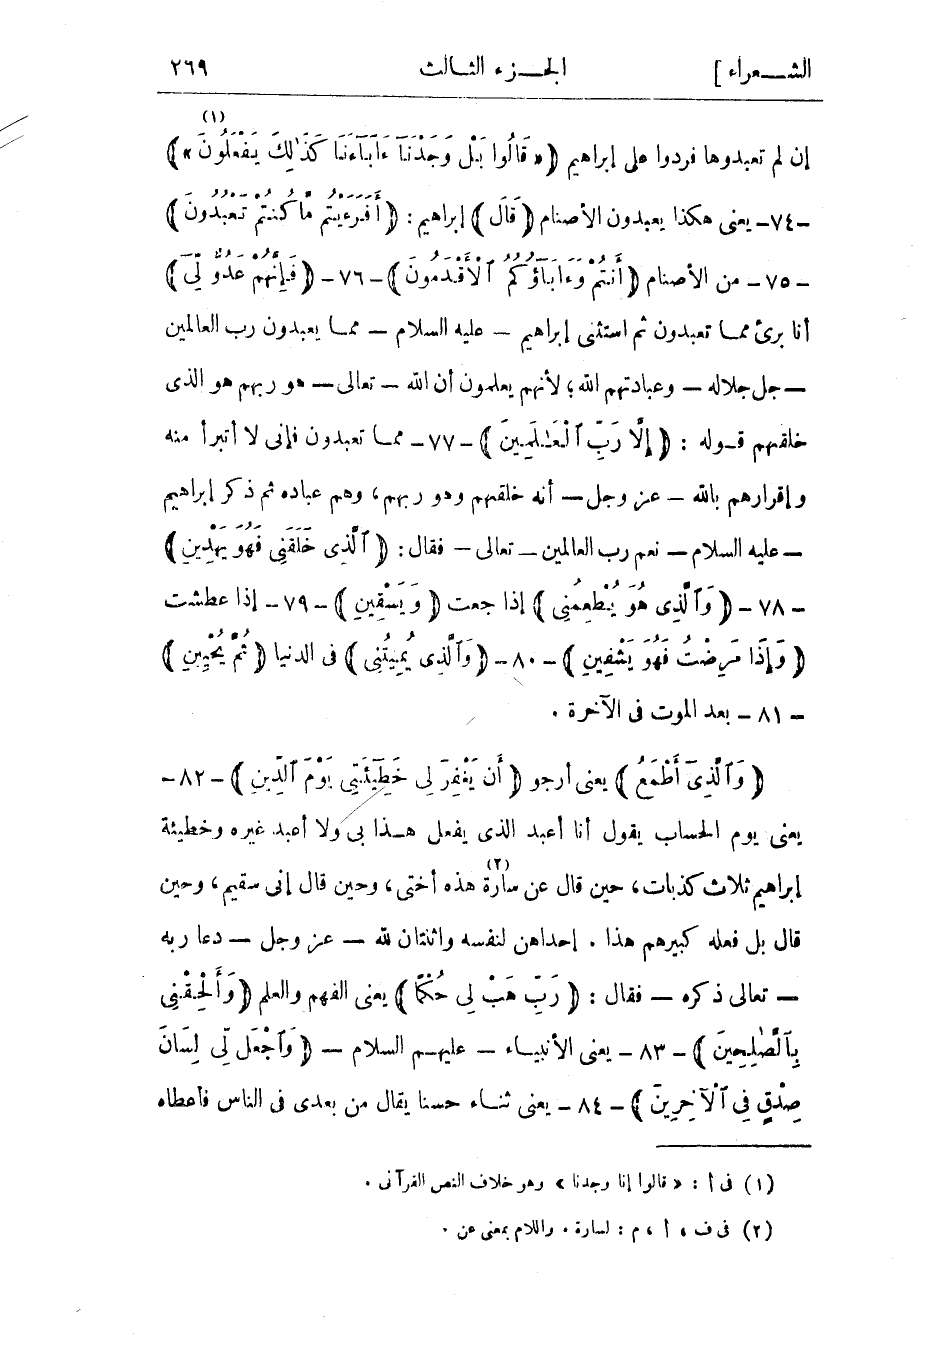 الشعراء ] الجزء الثالث ٢٦٩
(١)
إن لم تعبدوها فردوا على إبراهيم ﴿ « قَالُوا بَلْ وَجَدْنَآ ءَابَآءَنَا كَذَٰلِكَ يَفْعَلُونَ » ﴾
-٧٤- يعنى هكذا يعبدون الأصنام ﴿ قَالَ ﴾ إبراهيم : ﴿ أَفَرَءَيْتُم مَّا كُنتُمْ تَعْبُدُونَ ﴾
- ٧٥ - من الأصنام ﴿ أَنتُمْ وَءَابَآؤُكُمُ ٱلْأَقْدَمُونَ ﴾ - ٧٦ - ﴿ فَإِنَّهُمْ عَدُوٌّ لِّىٓ ﴾
أنا برئ مما تعبدون ثم استثنى إبراهيم - عليه السلام - مما يعبدون رب العالمين
- جل جلاله - وعبادتهم الله ؛ لأنهم يعلمون أن الله - تعالى - هو ربهم هو الذى
خلقهم قوله : ﴿ إِلَّا رَبَّ ٱلْعَـٰلَمِينَ ﴾ - ٧٧ - مما تعبدون فإنى لا أتبرأ منه
وإقرارهم بالله - عز وجل - أنه خلقهم وهو ربهم ، وهم عباده ثم ذكر إبراهيم
- عليه السلام - نعم رب العالمين - تعالى - فقال : ﴿ ٱلَّذِى خَلَقَنِى فَهُوَ يَهْدِينِ ﴾
- ٧٨ - ﴿ وَٱلَّذِى هُوَ يُطْعِمُنِى ﴾ إذا جعت ﴿ وَيَسْقِينِ ﴾ - ٧٩ - إذا عطشت
﴿ وَإِذَا مَرِضْتُ فَهُوَ يَشْفِينِ ﴾ - ٨٠ - ﴿ وَٱلَّذِى يُمِيتُنِى ﴾ فى الدنيا ﴿ ثُمَّ يُحْيِينِ ﴾
- ٨١ - بعد الموت فى الآخرة .
﴿ وَٱلَّذِىٓ أَطْمَعُ ﴾ يعنى أرجو ﴿ أَن يَغْفِرَ لِى خَطِيٓئَتِى يَوْمَ ٱلدِّينِ ﴾ - ٨٢ -
يعنى يوم الحساب يقول أنا أعبد الذى يفعل هذا بى ولا أعبد غيره وخطيئة
(٢)
إبراهيم ثلاث كذبات ، حين قال عن سارة هذه أختى ، وحين قال إنى سقيم ، وحين
قال بل فعله كبيرهم هذا . إحداهن لنفسه واثنتان لله - عز وجل - دعا ربه
- تعالى ذكره - فقال : ﴿ رَبِّ هَبْ لِى حُكْمًا ﴾ يعنى الفهم والعلم ﴿ وَأَلْحِقْنِى
بِٱلصَّـٰلِحِينَ ﴾ - ٨٣ - يعنى الأنبياء - عليهم السلام - ﴿ وَٱجْعَل لِّى لِسَانَ
صِدْقٍ فِى ٱلْآخِرِينَ ﴾ - ٨٤ - يعنى ثناء حسنا يقال من بعدى فى الناس فأعطاه
(١) فى أ : « قالوا إنا وجدنا » وهو خلاف النص القرآنى .
(٢) فى ف ، أ ، م : لسارة . واللام بمعنى عن .